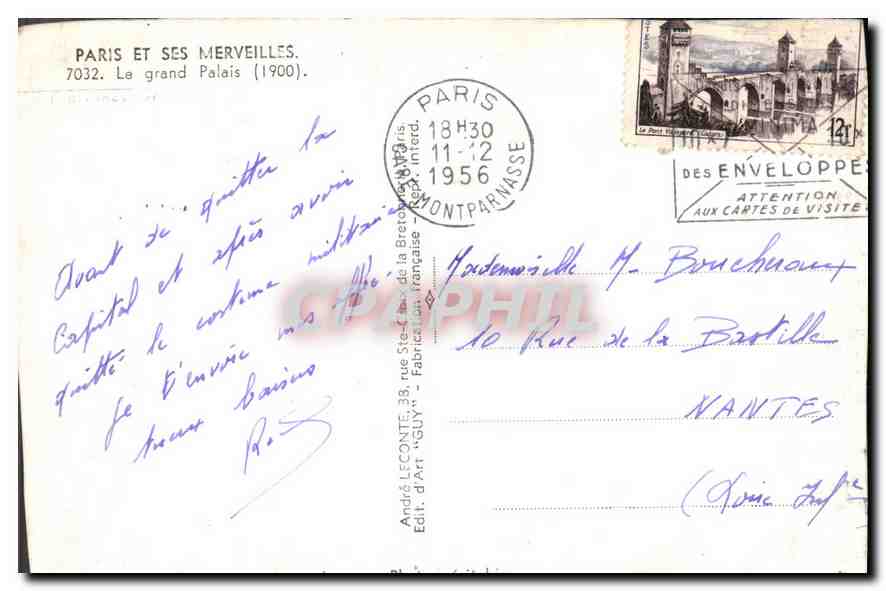 PARIS ET SES MERVEILLES.
7032. Le grand Palais (1900).
Avant de quitter la
Capital et après avoir
quitté le costume militaire
je t'envoie mes affec
tueux baisers
PARIS
18H30
11-12
1956
MONTPARNASSE
POSTES
Le Pont Valentré (Cahors)
12f
DES ENVELOPPES
ATTENTION
AUX CARTES DE VISITE
André LECONTE, 38, rue Ste-Croix de la Bretonnerie, Paris.
Edit. d'Art "GUY" - Fabrication Française - Repr. interd.
CPAPHIL
Mademoiselle M. Boucheraux
10 Rue de la Bastille
NANTES
(Loire Infre